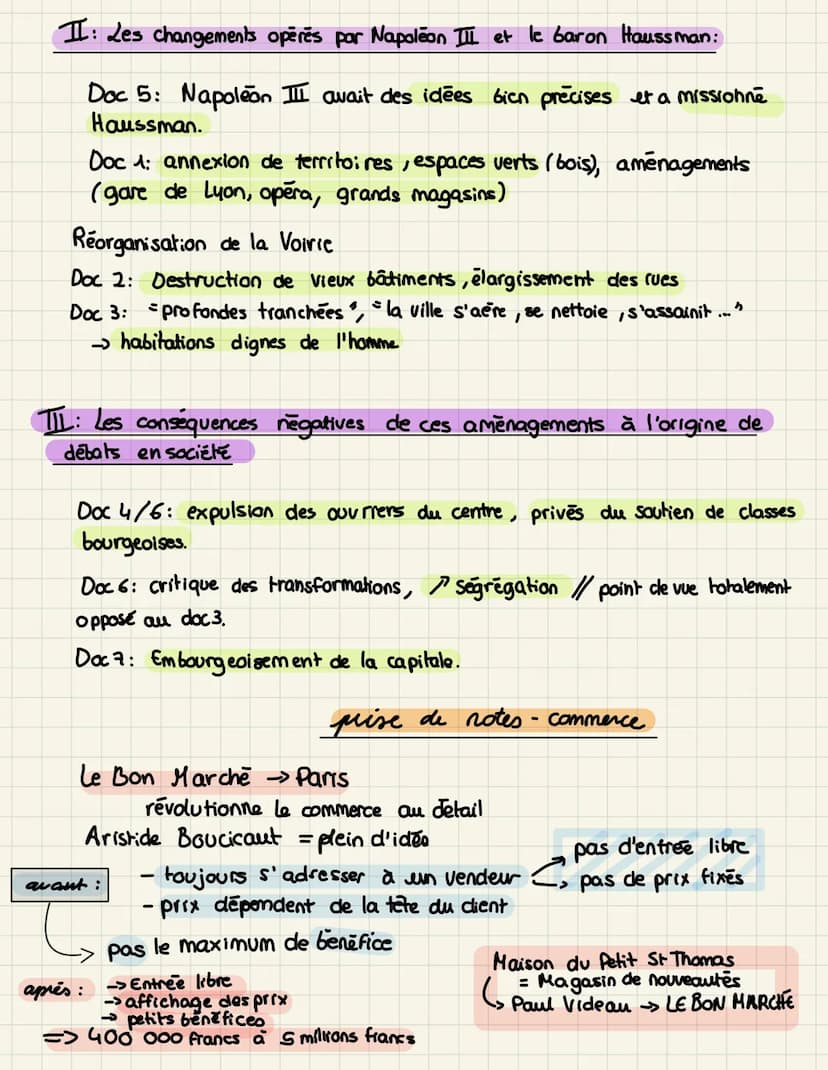 II: Les changements opérés par Napoléon III et le baron Haussman:
Doc 5: Napoléon III avait des idées bien précises et a missionné
Haussman.
Doc 1: annexion de territoires, espaces verts (bois), aménagements
(gare de Lyon, opéra, grands magasins)
Réorganisation de la Voirie
Doc 2: Destruction de vieux bâtiments, élargissement des rues
Doc 3: "profondes tranchées", "la ville s'aère, se nettoie, s'assainit ..."
→ habitations dignes de l'homme
III: Les conséquences négatives de ces aménagements à l'origine de
débats en société
Doc 4/6: expulsion des ouvriers du centre, privés du soutien de classes
bourgeoises.
Doc 6: critique des transformations, ↗ ségrégation // point de vue totalement
opposé au doc 3.
Doc 7: Embourgeoisement de la capitale.
prise de notes - commerce
Le Bon Marché → Paris
révolutionne le commerce au détail
Aristide Boucicaut = plein d'idée
avant :
- toujours s'adresser à un vendeur
→ pas d'entrée libre
→ pas de prix fixés
- prix dépendent de la tête du client
→ pas le maximum de bénéfice
après :
→ Entrée libre
→ affichage des prix
→ petits bénéfices
=> 400 000 francs à 5 millions francs
Maison du Petit St Thomas
= Magasin de nouveautés
→ Paul Videau → LE BON MARCHÉ